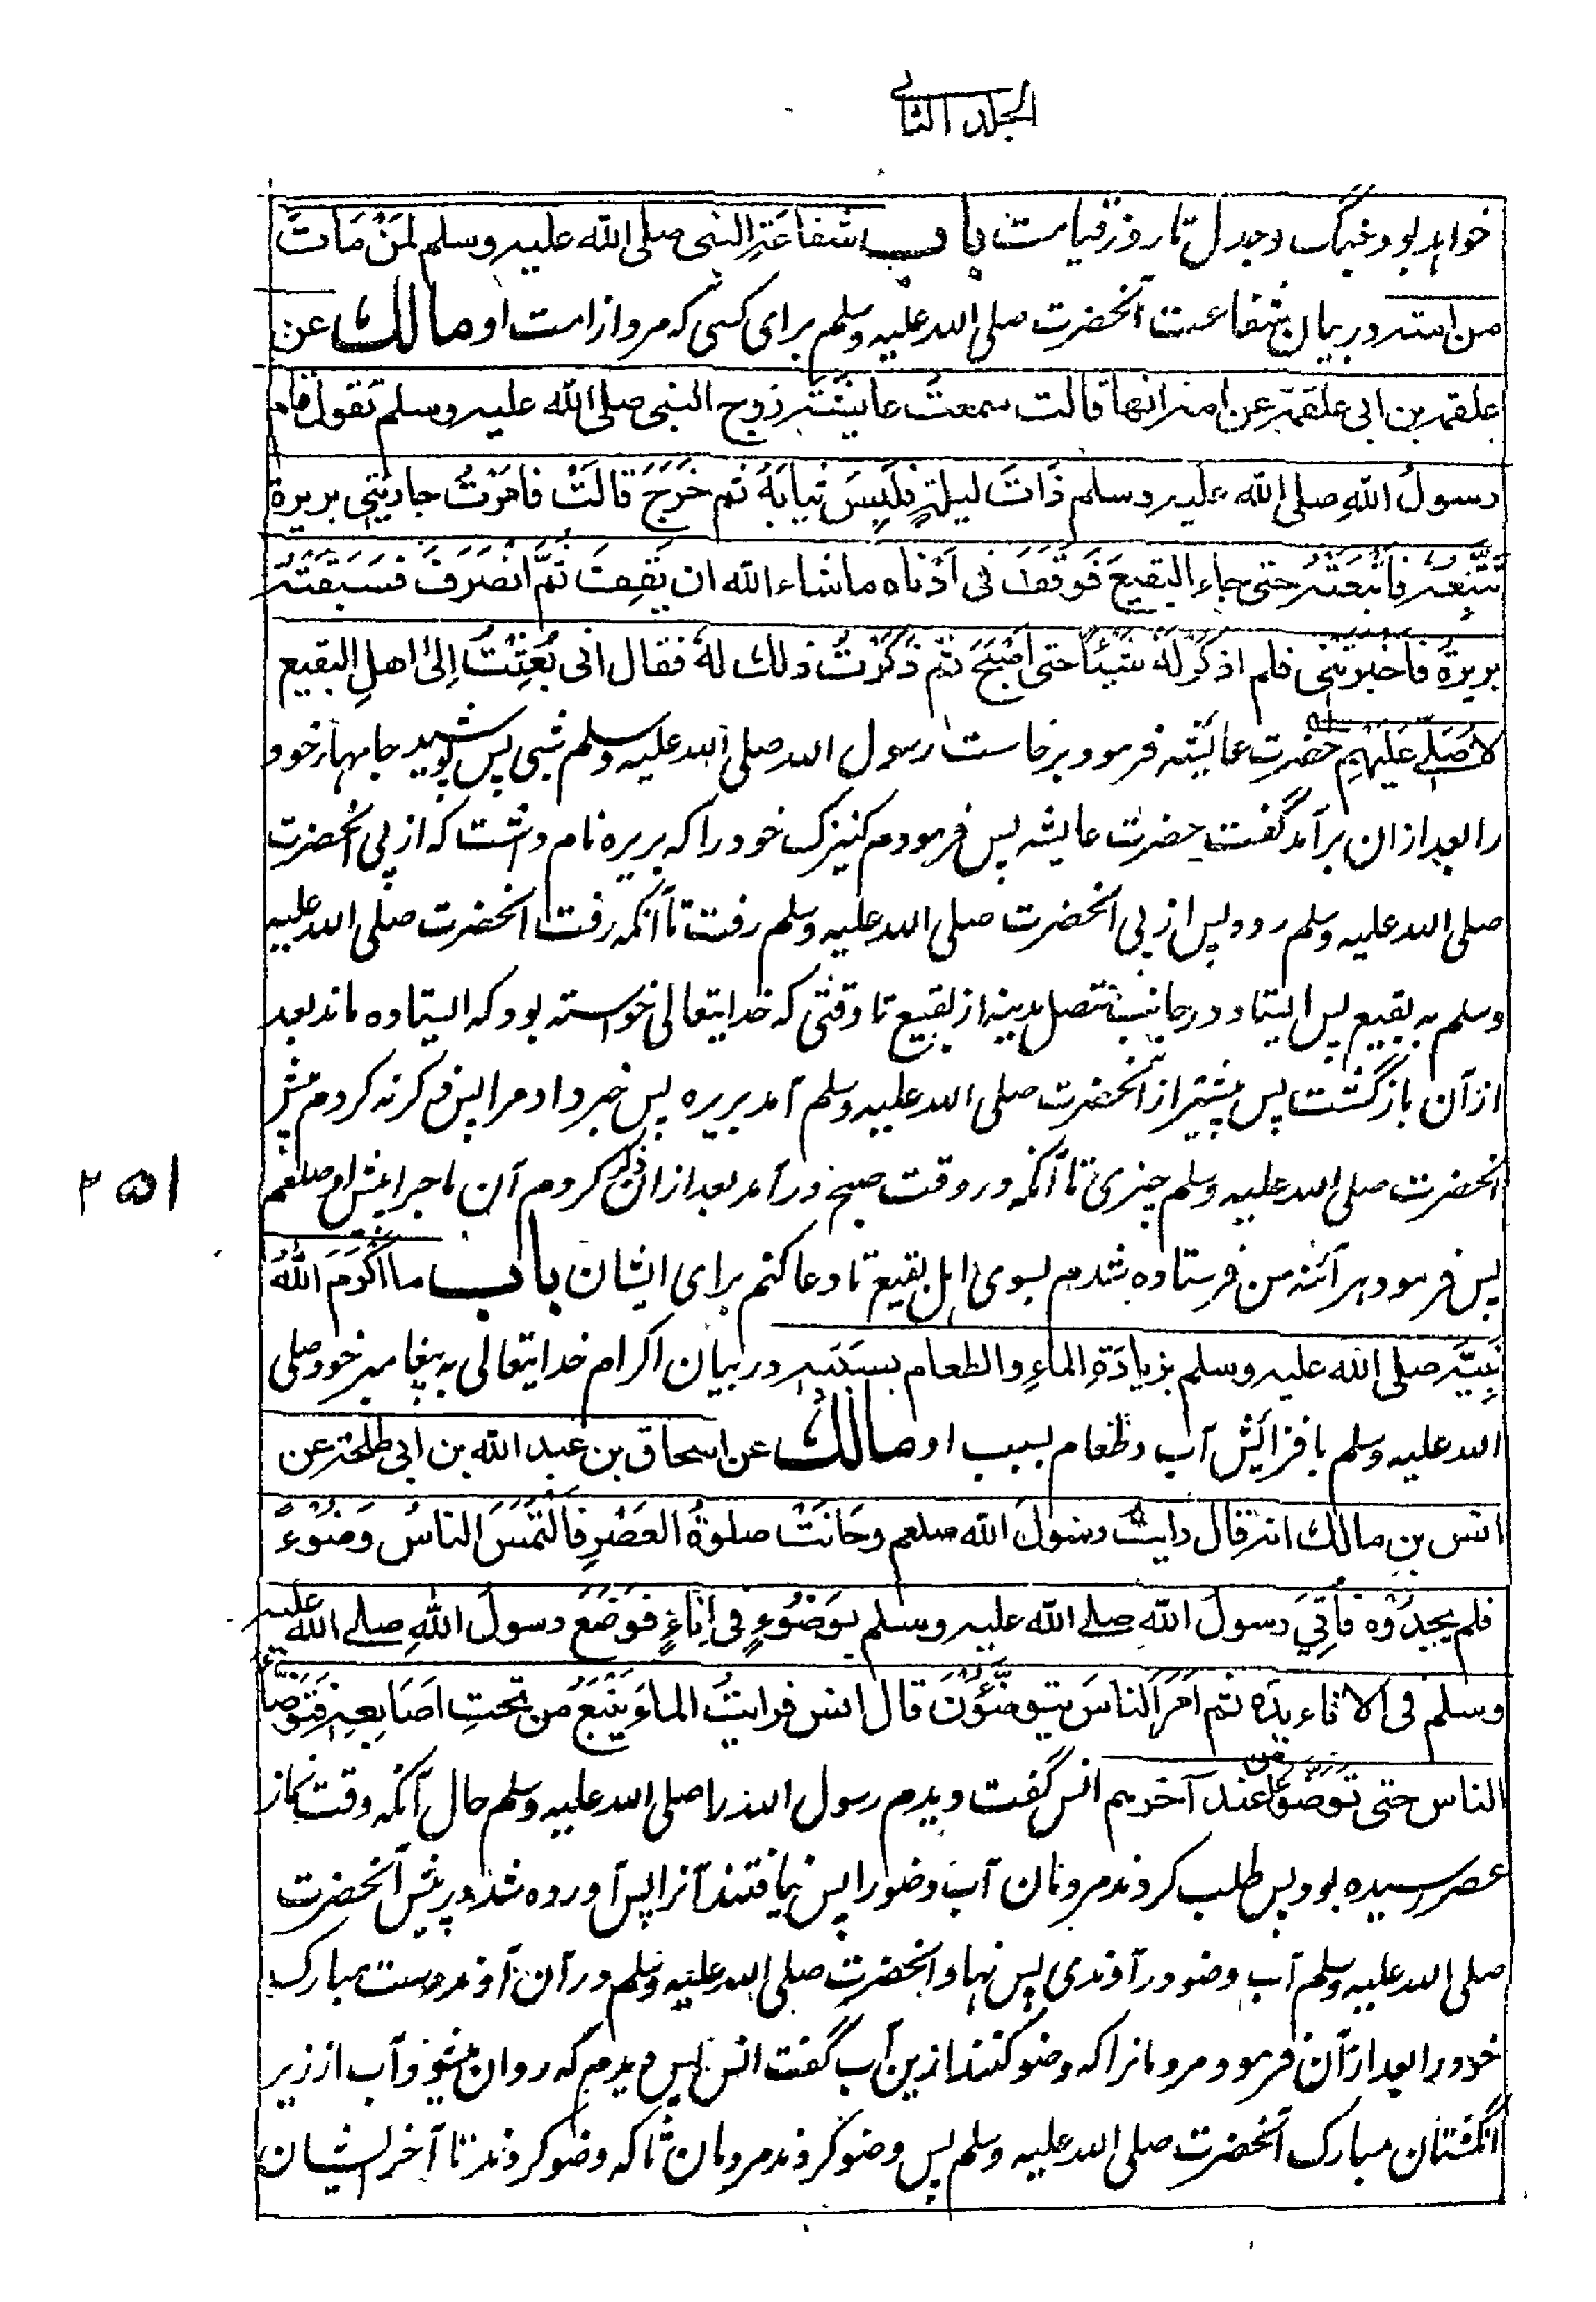 الجلد الثانی
خواهد بود جنگ و جدل تا روز قیامت باب شفاعَةِ النبی صلی الله علیه وسلم لمَنْ مَاتَ
من امته در بیان شفاعت آنحضرت صلی الله علیه وسلم برای کسی که مرد از امت او مالك عن
علقمة بن ابی علقمة عن امه انها قالت سمعتُ عایشةَ زوج النبی صلی الله علیه وسلم تقول قام
رسولُ اللهِ صلی الله علیه وسلم ذَاتَ لیلةٍ فلَبِسَ ثِیابَهُ ثم خَرَجَ قالَتْ فامَرْتُ جاریتی بریرة
تَتْبَعُه فاتبَعَتْه حتی جاء البقیعَ فَوَقَفَ فی اَدْناه ماشاء الله ان یَقِفَ ثُمَّ انْصَرَفَ فسَبَقَتْهُ
بریرةُ فاَخبَرَتْنِی فلم اذکُرْ لَهُ شَیْئاً حتی اَصْبَحَ ثم ذَکَرْتُ ذلك لهُ فقال انی بُعِثْتُ اِلیٰ اهلِ البقیع
لاُصَلِّے عَلَیْهِم حضرت عایشه فرمود برخاست رسول الله صلی الله علیه وسلم شبی پس پوشید جامهاے خود
را بعد ازان برآمد گفت حضرت عایشه پس فرمودم کنیزک خود را که بریره نام داشت که از پی آنحضرت
صلی الله علیه وسلم رود پس از پی آنحضرت صلی الله علیه وسلم رفت تا آنکه رفت آنحضرت صلی الله علیه
وسلم به بقیع پس ایستاد در جانب متصل مدینه از بقیع تا وقتی که خدایتعالی خواسته بود که ایستاده ماند بعد
از آن بازگشت پس پیشتر از آنحضرت صلی الله علیه وسلم آمد بریره پس خبر داد مرا پس ذکر نه کردم پیش
آنحضرت صلی الله علیه وسلم چیزی تا آنکه در وقت صبح در آمد بعد ازان ذکر کردم آن ماجرا پیش او صلعم
۲۵۱
پس فرمود هر آئنه من فرستاده شدم بسوی اهل بقیع تا دعا کنم برای ایشان باب ما اَکْرَمَ اللهُ
نَبِیَّه صلی الله علیه وسلم بزیادَةِ الماءِ والطعام بسببه در بیان اکرام خدایتعالی به پیغامبر خود صلی
الله علیه وسلم بافزایش آب و طعام بسبب او مالك عن اسحاق بن عبد الله بن ابی طلحة عن
انس بن مالك انه قال رایتُ رسولَ الله صلعم وحَانَتْ صلوةُ العَصْرِ فالتَمَسَ الناسُ وَضُوْءً
فلم یجِدُوْه فاُتِیَ رسولُ اللهِ صلے الله علیه وسلم بوَضُوْءٍ فی اِنَاءٍ فوَضَعَ رسولُ اللهِ صلے الله علیه
وسلم فی الاناء یدَه ثم اَمَرَ الناسَ یتوضَّؤُنَ قال انس فرایتُ الماءَ یَنْبَعُ من تحتِ اَصَابِعِه فَتَوَضَّأَ
الناس حتی تَوَضَّؤُا من عند آخرهم انس گفت دیدم رسول الله را صلی الله علیه وسلم حال آنکه وقت نماز
عصر رسیده بود پس طلب کردند مردمان آب وضو را پس نیافتند آنرا پس آورده شد در پیش آنحضرت
صلی الله علیه وسلم آب وضو در آوندی پس نهاد آنحضرت صلی الله علیه وسلم در آن آوند دست مبارک
خود را بعد از آن فرمود مردمانرا که وضو کنند ازین آب گفت انس پس دیدم که روان میشود آب از زیر
انگشتان مبارک آنحضرت صلی الله علیه وسلم پس وضو کردند مردمان تا که وضو کردند تا آخر ایشان